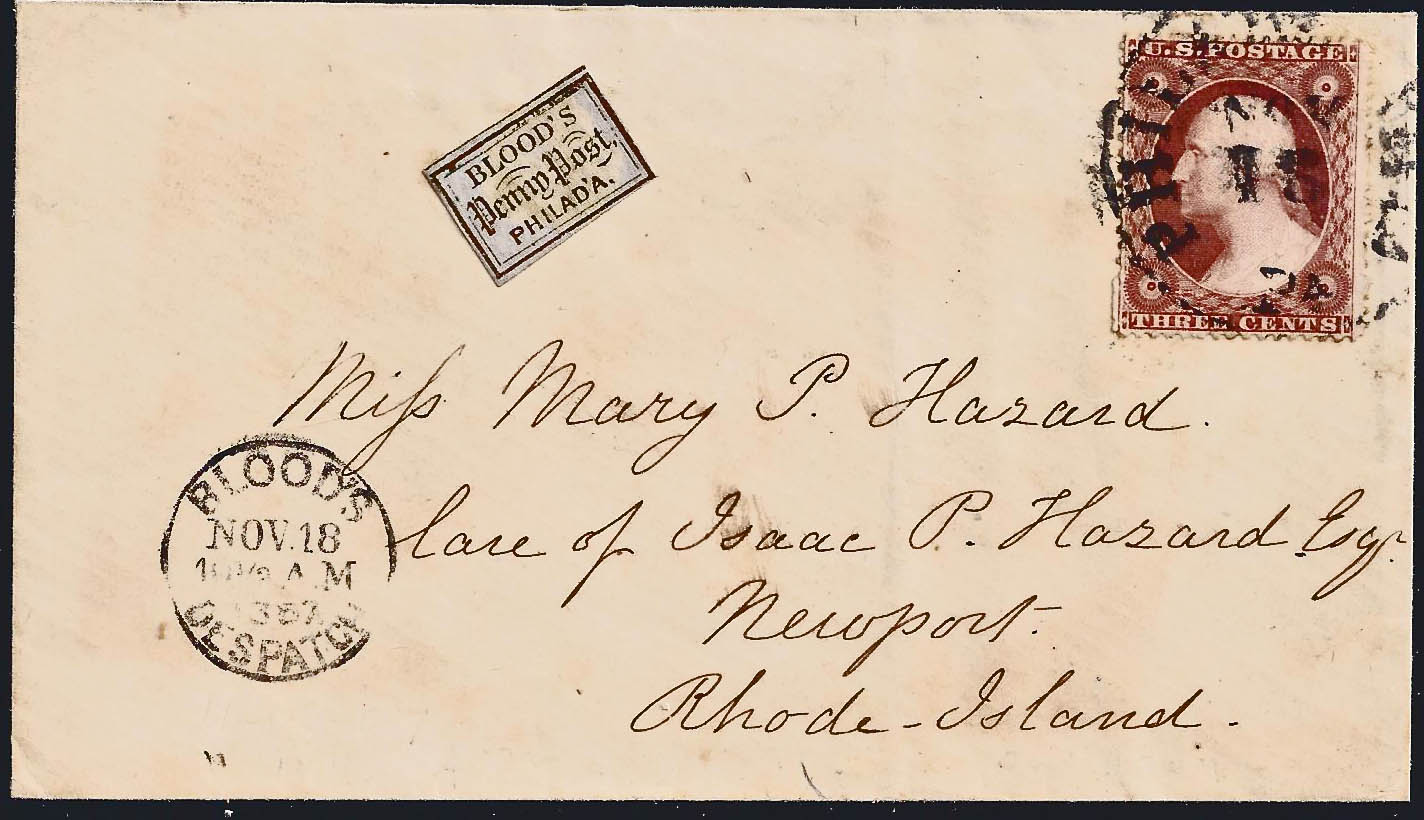 BLOOD'S
Penny Post.
PHILAD'A.
U.S. POSTAGE
THREE CENTS
PHILA
NOV
18
Miſs Mary P. Hazard.
Care of Isaac P. Hazard Esqr.
Newport.
Rhode-Island.
BLOOD'S
NOV.18
A.M
DESPATCH